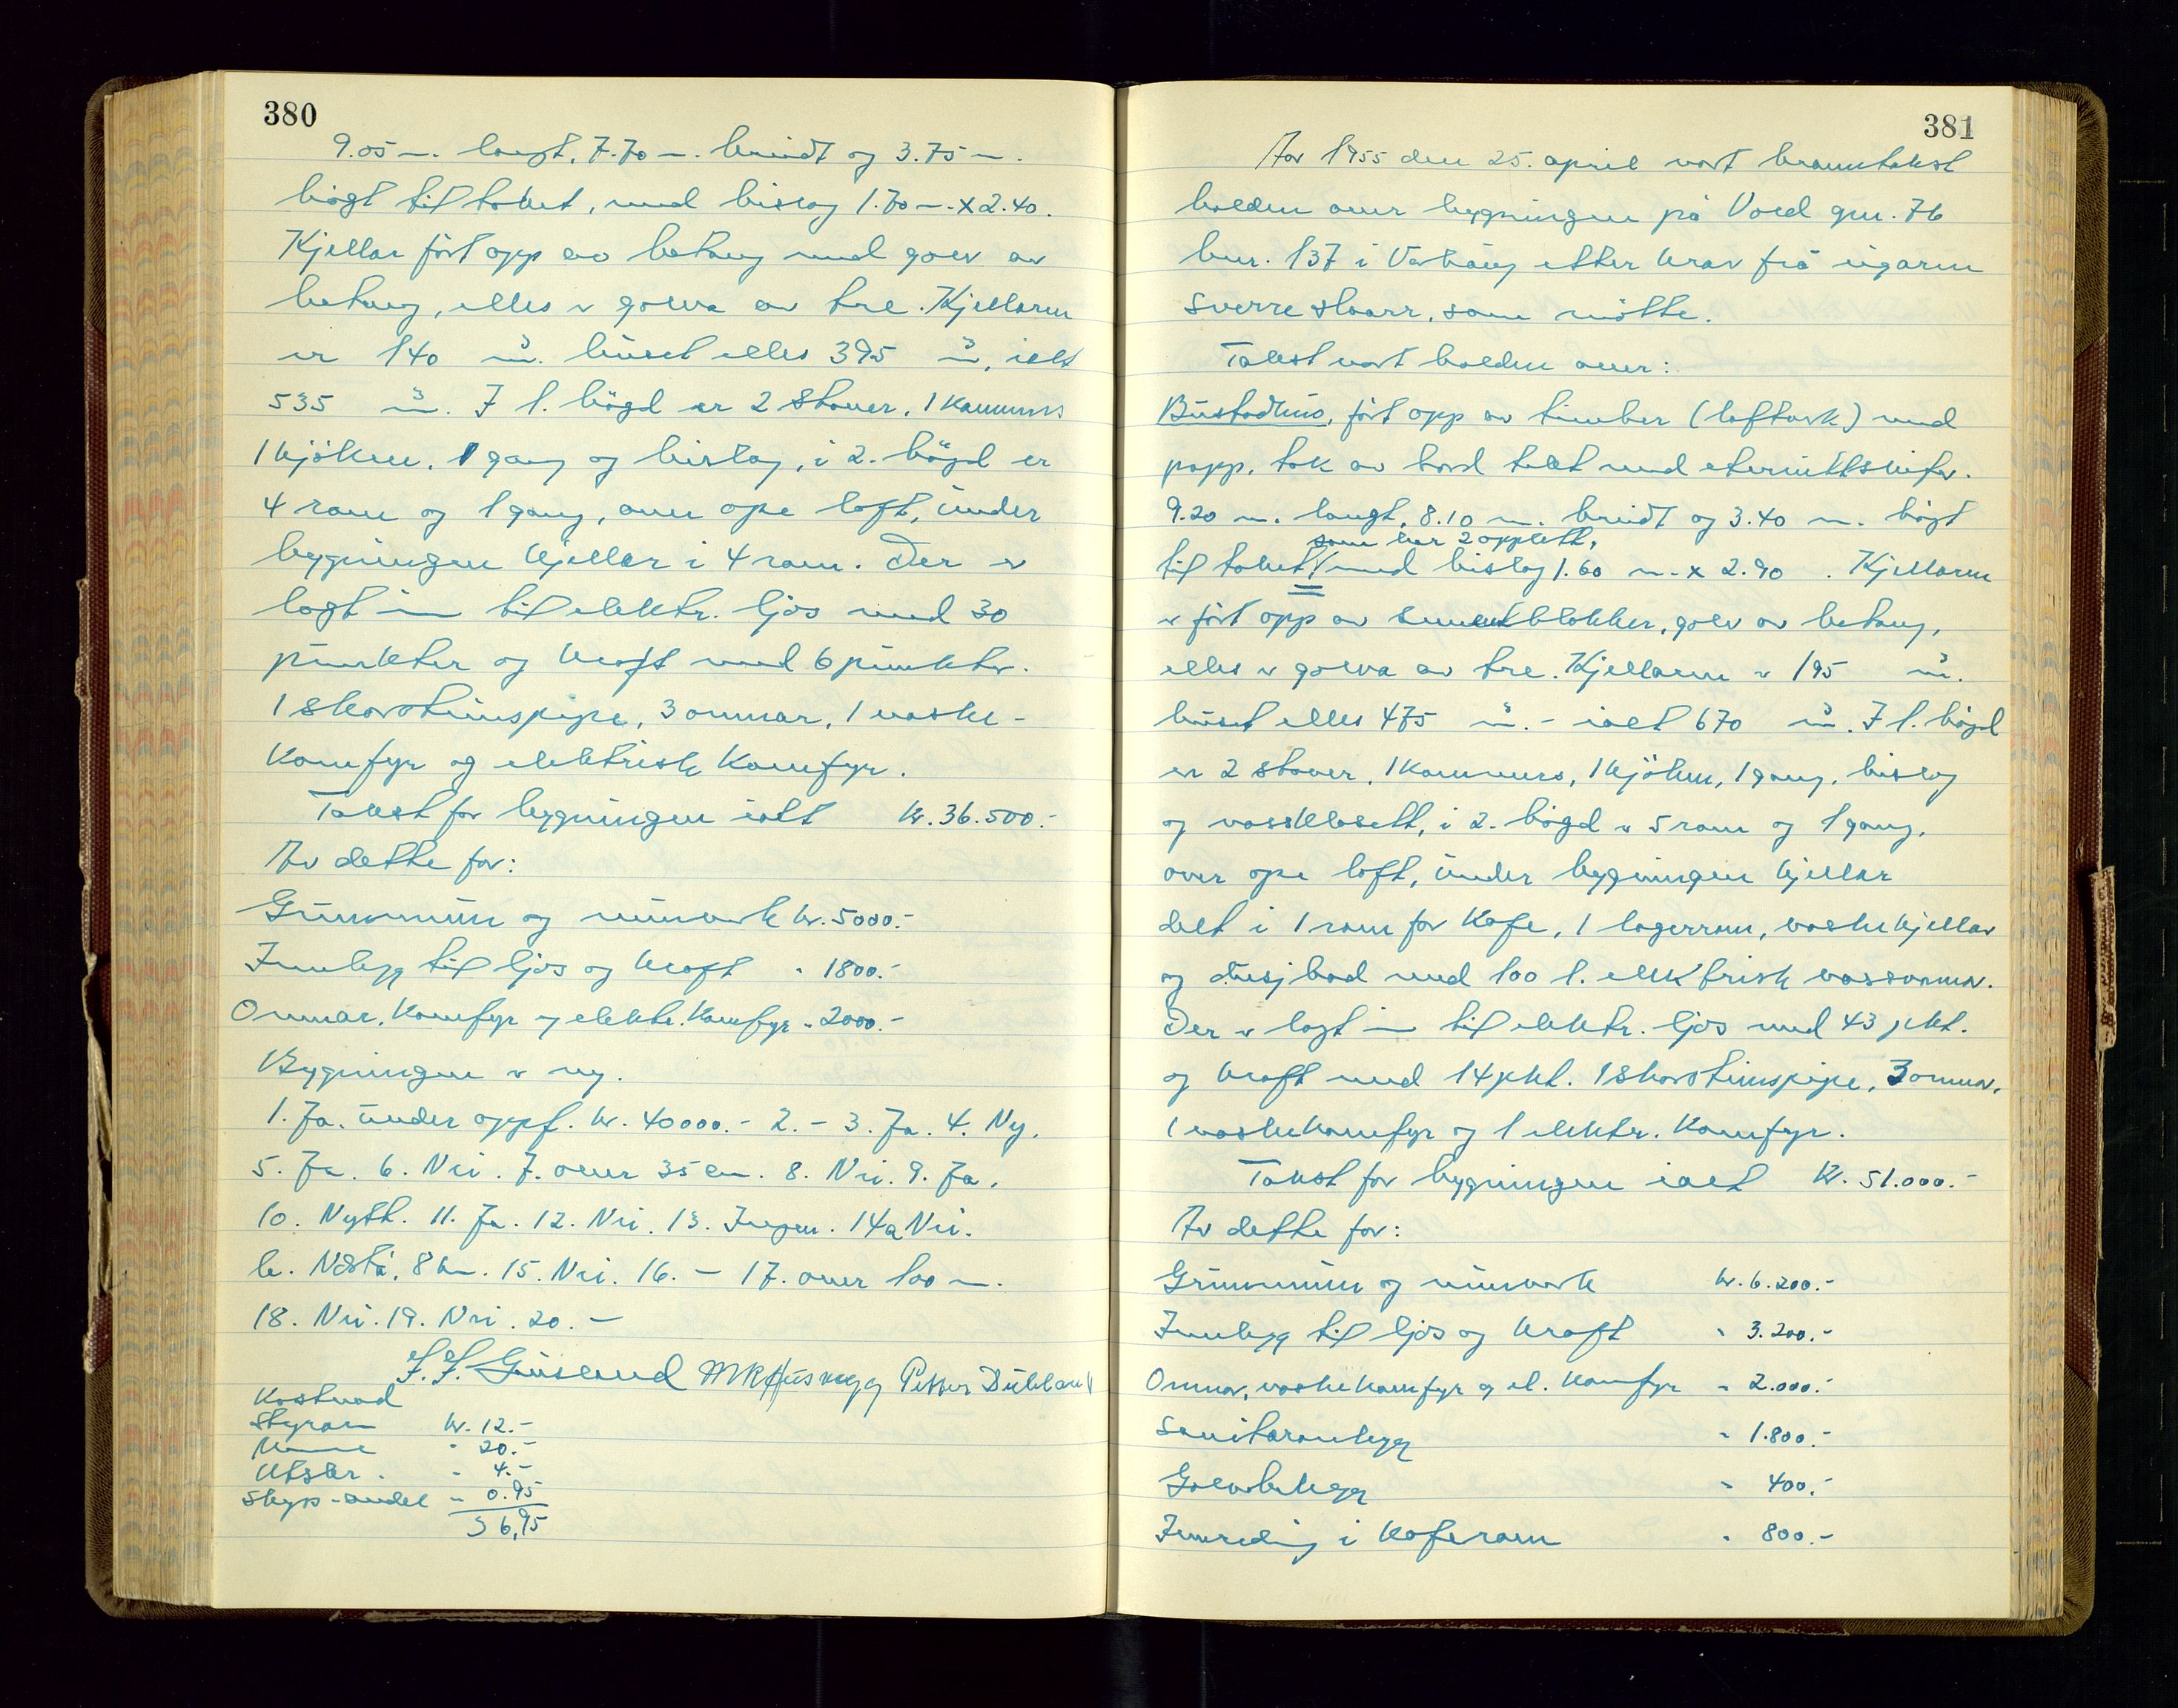 380
9.05 m. langt, 7.70 m. breidt og 3.75 m.
högt til taket, med bislag 1.70 m. x 2.40.
Kjellar fört opp av betong med golv av
betong, elles er golva av tre. Kjellaren
er 140 m³. huset elles 395 m³, ialt
535 m³. I 1. högd er 2 stover, 1 kammers
1 kjöken, 1 gang og bislag, i 2. högd er
4 rom og 1 gang, over ope loft, under
bygningen kjellar i 4 rom. Der er
lagt inn til elektr. ljos med 30
punkter og kraft med 6 punkter.
1 skorsteinspipe, 3 omnar, 1 vaske-
komfyr og elektrisk komfyr.
Takst for bygningen ialt kr. 36.500.-
Av dette for:
Grunnmur og murverk kr. 5000.-
Innlegg til ljos og kraft " 1800.-
Omnar, komfyr og elektr. komfyr " 2000.-
Bygningen er ny.
1. Ja. under oppf. kr. 40000.- 2. - 3. Ja. 4. Ny.
5. Ja. 6. Nei. 7. over 35 cm. 8. Nei. 9. Ja.
10. Nytt. 11. Ja. 12. Nei. 13. Ingen. 14a Nei.
b. Nærbö, 8 km. 15. Nei. 16. - 17. over 100 m.
18. Nei. 19. Nei. 20. -
Kostnad
Styraren kr. 12.-
Menn " 20.-
Utskr. " 4.-
Skyss-andel " 0.95
36,95
381
År 1955 den 25. april vart branntakst
halden over bygningen på Vold gnr. 76
bnr. 137 i Varhaug etter krav frå eigaren
Sverre Skaar, som mötte.
Takst vart halden over:
Bustadhus, fört opp av timber (loftverk) med
papp, tak av bord tekt med eternittskifer.
9.20 m. langt, 8.10 m. breidt og 3.40 m. högt
som har 2 opplett,
til taket, med bislag 1.60 m. x 2.90 . Kjellaren
er fört opp av sementblokker, golv av betong,
elles er golva av tre. Kjellaren er 195 m³.
huset elles 475 m³. - ialt 670 m³. I 1. högd
er 2 stover, 1 kammers, 1 kjöken, 1 gang, bislag
og vassklosett, i 2. högd er 5 rom og 1 gang.
over ope loft, under bygningen kjellar
delt i 1 rom for kafe, 1 lagerrom, vaskekjellar
og dusjbad med 100 l. elektrisk vassvarmar.
Der er lagt inn til elektr. ljos med 43 pkt.
og kraft med 14 pkt. 1 skorsteinspipe, 3 omnar,
1 vaskekomfyr og 1 elektr. komfyr.
Takst for bygningen ialt kr. 51.000.-
Av dette for:
Grunnmur og murverk kr. 6.200.-
Innlegg til ljos og kraft " 3.200.-
Omnar, vaskekomfyr og el. komfyr " 2.000.-
Sanitæranlegg " 1.800.-
Golvbelegg " 400.-
Innreding i kaferom " 800.-